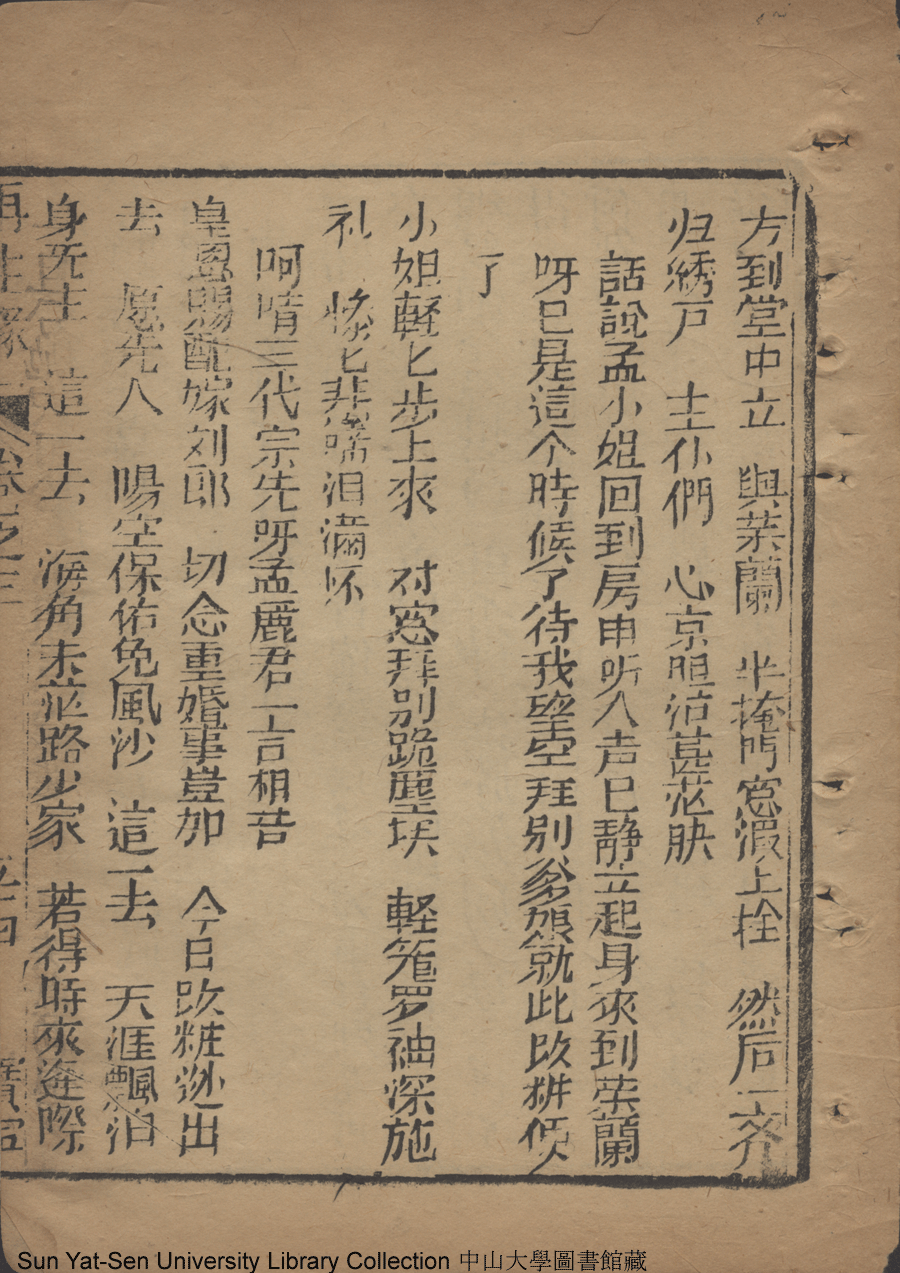 方到堂中立 與荣蘭 半掩門窓浪上拴 然后一齐
归綉户 主仆們 心京胆
話說孟小姐回到房申听人声巳静立起身來到荣蘭
呀巳是這个時候了待我望空拜别爹娘就此改粧便
了
小姐輕匕步上來 对窓拜别跪塵埃 軽笼罗袖深施
礼 惨匕悲啼泪满怀
呵唷三代宗先呀孟麗君一言相告
皇恩賜配嫁刘郎 切念重婚事豈如 今日改粧逊出
去 愿先人 陽空保佑免風沙 這一去 天涯飄泊
身无主 這一去 海角未茫路少家 若得時來逢際
再生緣 卷之三